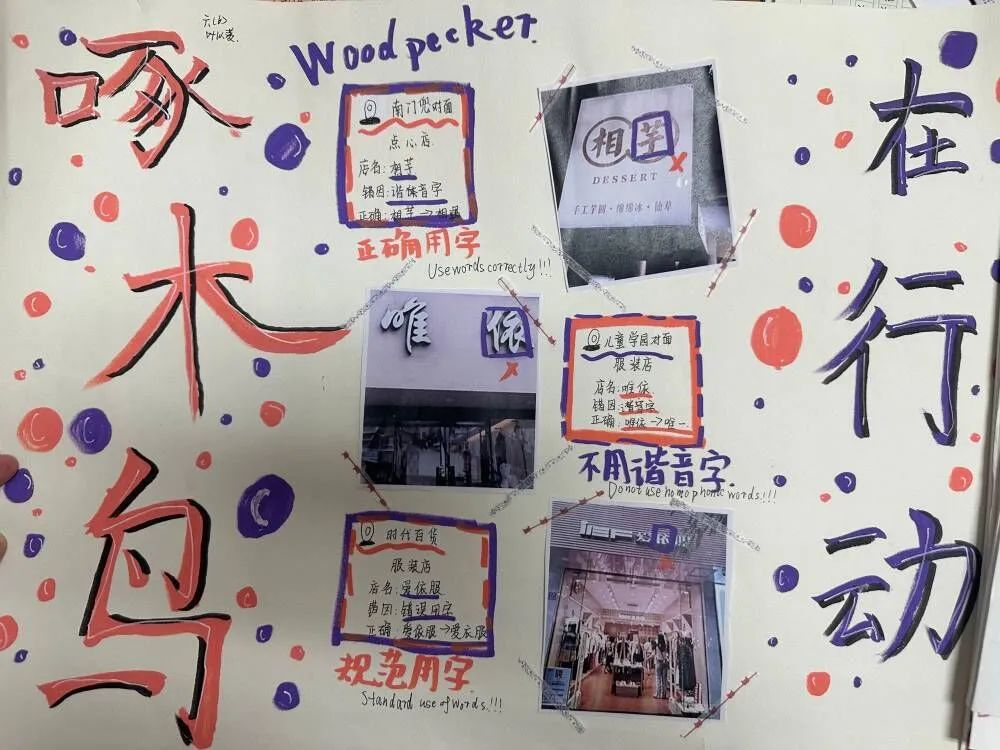 啄木鸟
Woodpecker.
南门兜对面
点心店
店名:相芋
错因:谐音字
正确:相芋→相遇
正确用字
Use words correctly!!!
相芋
DESSERT
手工芋圆·绵绵冰·仙草
唯依
儿童学园对面
服装店
店名:唯依
错因:谐音字
正确:唯依→唯一
不用谐音字.
Do not use homophonic words!!!
时代百货
服装店
店名:爱依服
错误用字
正确:爱依服→爱衣服
规范用字.
Standard use of words.!!!
爱依服
在行动